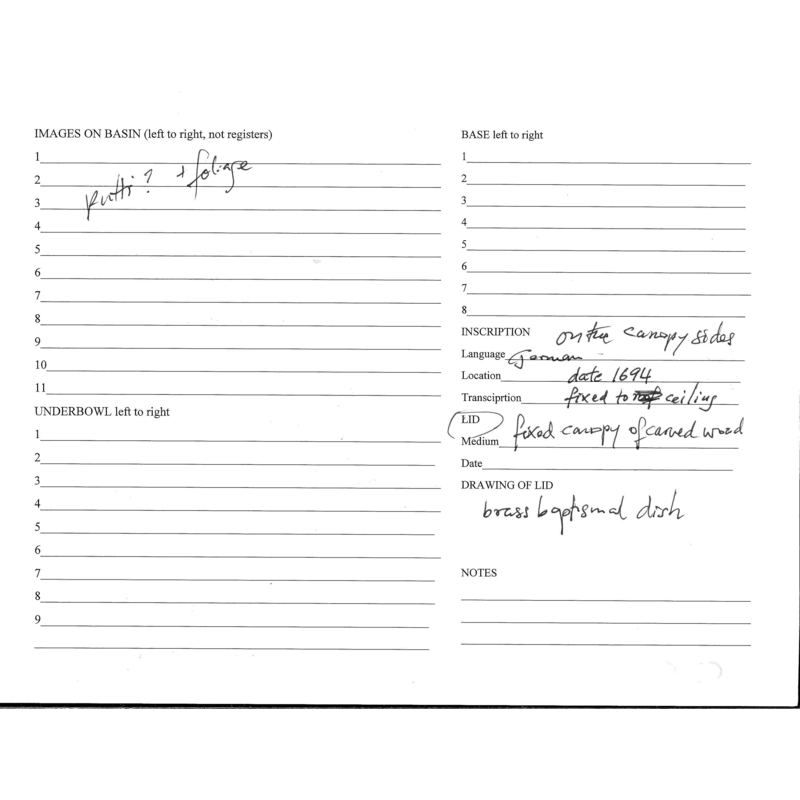 IMAGES ON BASIN (left to right, not registers)
1
2 putti? + foliage
3
4
5
6
7
8
9
10
11
UNDERBOWL left to right
1
2
3
4
5
6
7
8
9
BASE left to right
1
2
3
4
5
6
7
8
INSCRIPTION on the canopy sides
Language German
Location date 1694
Transciprtion fixed to ceiling
LID
Medium fixed canopy of carved wood
Date
DRAWING OF LID
brass baptismal dish
NOTES